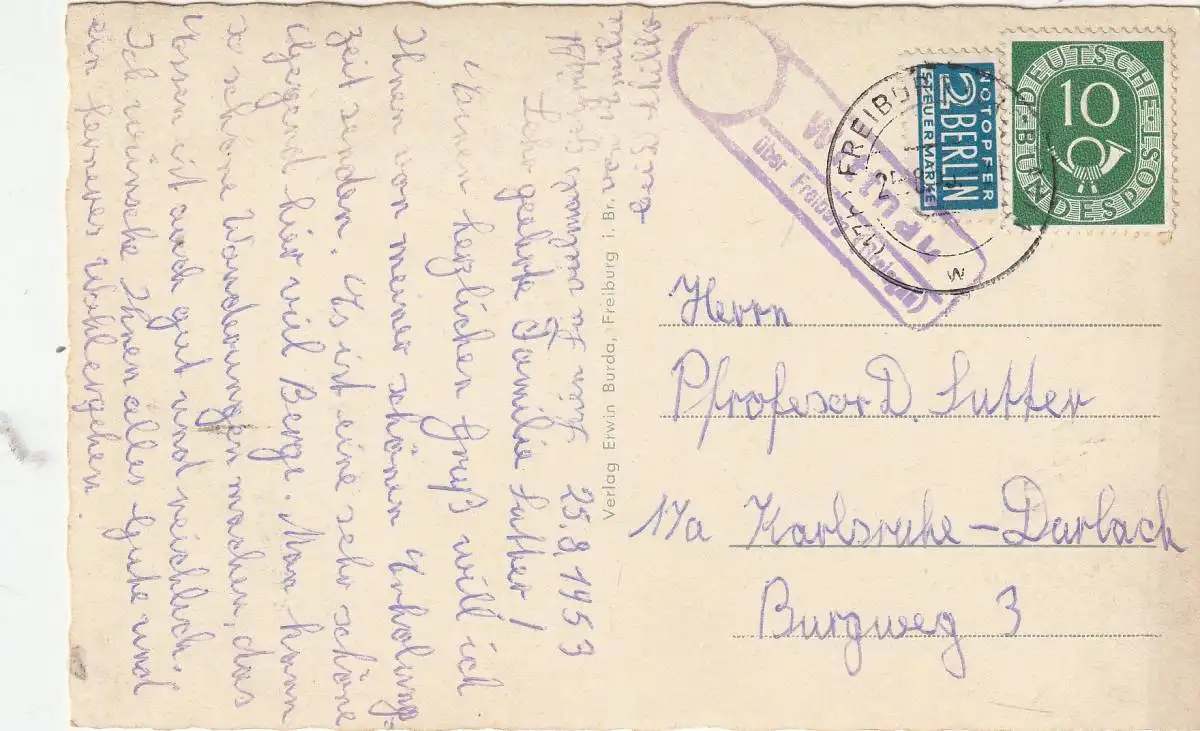 25.8.1953
Sehr geehrte Familie Sutter!
Einen herzlichen Gruß will ich
Ihnen von meiner schönen Erholungs=
zeit senden. Es ist eine sehr schöne
hier viel Berge. Man kann
so schöne Wanderungen machen, das
Essen ist auch gut und reichlich.
Ich wünsche Ihnen alles Gute und
ein ferneres Wohlergehen.
vielmals
von
Verlag Erwin Burda, Freiburg i. Br.
über Freiburg
FREIBURG
w
NOTOPFER
2 BERLIN
STEUERMARKE
DEUTSCHE BUNDESPOST
10
Herrn
Pfrofesor D. Sutter
17a Karlsruhe-Durlach
Burgweg 3